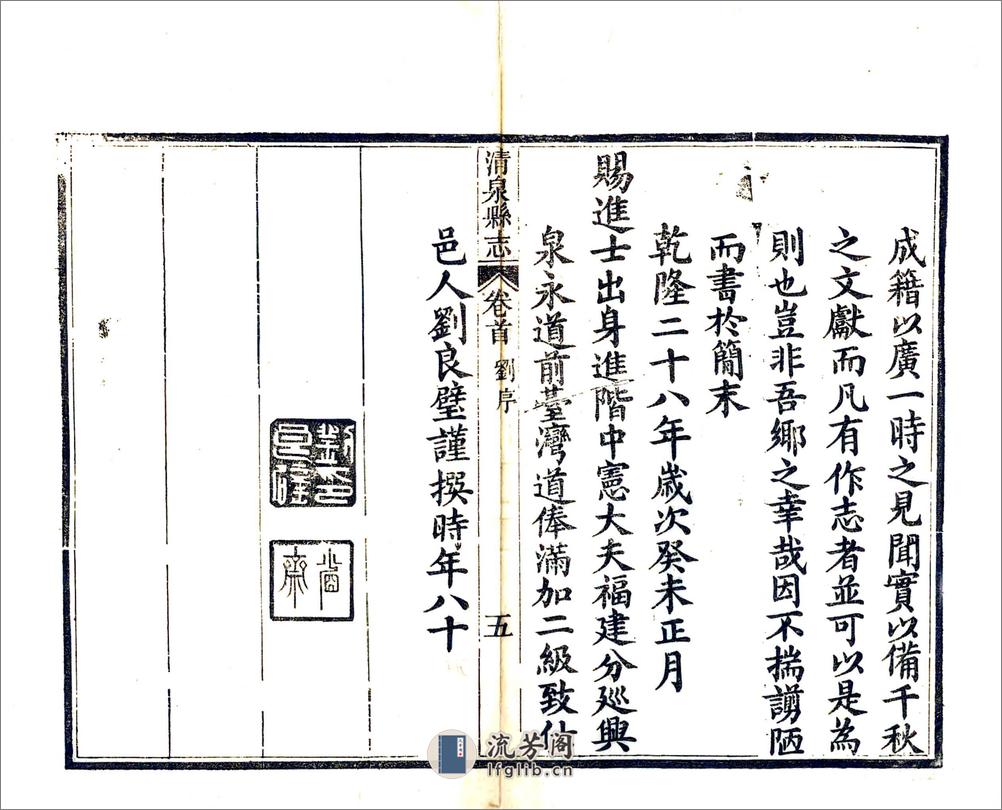 成籍以廣一時之見聞實以備千秋
之文獻而凡有作志者並可以是為
則也豈非吾鄉之幸哉因不揣謭陋
而書於簡末
乾隆二十八年歲次癸未正月
賜進士出身進階中憲大夫福建分廵興
泉永道前臺灣道俸滿加二級致仕
清泉縣志 卷首 劉序 五
邑人劉良璧謹撰時年八十
省齋
流芳阁
lfglib.cn